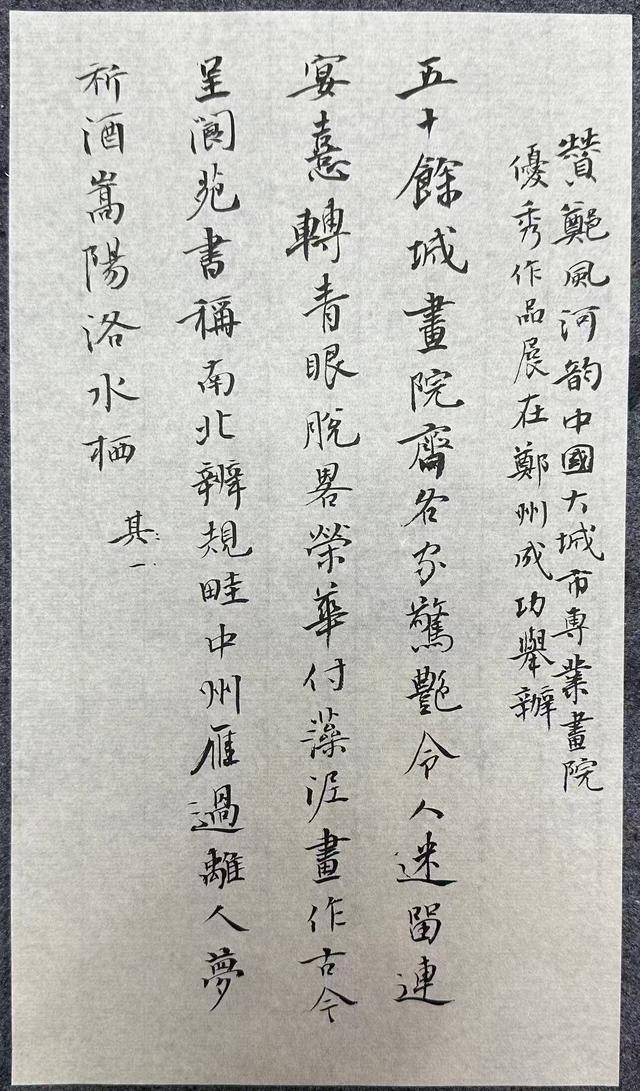 赞鄭風河韵中國大城市專業畫院
優秀作品展在鄭州成功舉辦
五十餘城畫院齊名家驚艷令人迷留連
宴憙轉青眼脫畧榮華付藻涯畫作古今
呈閬苑書稱南北辨規畦中州雁過離人夢
祈酒嵩陽洛水栖
其一